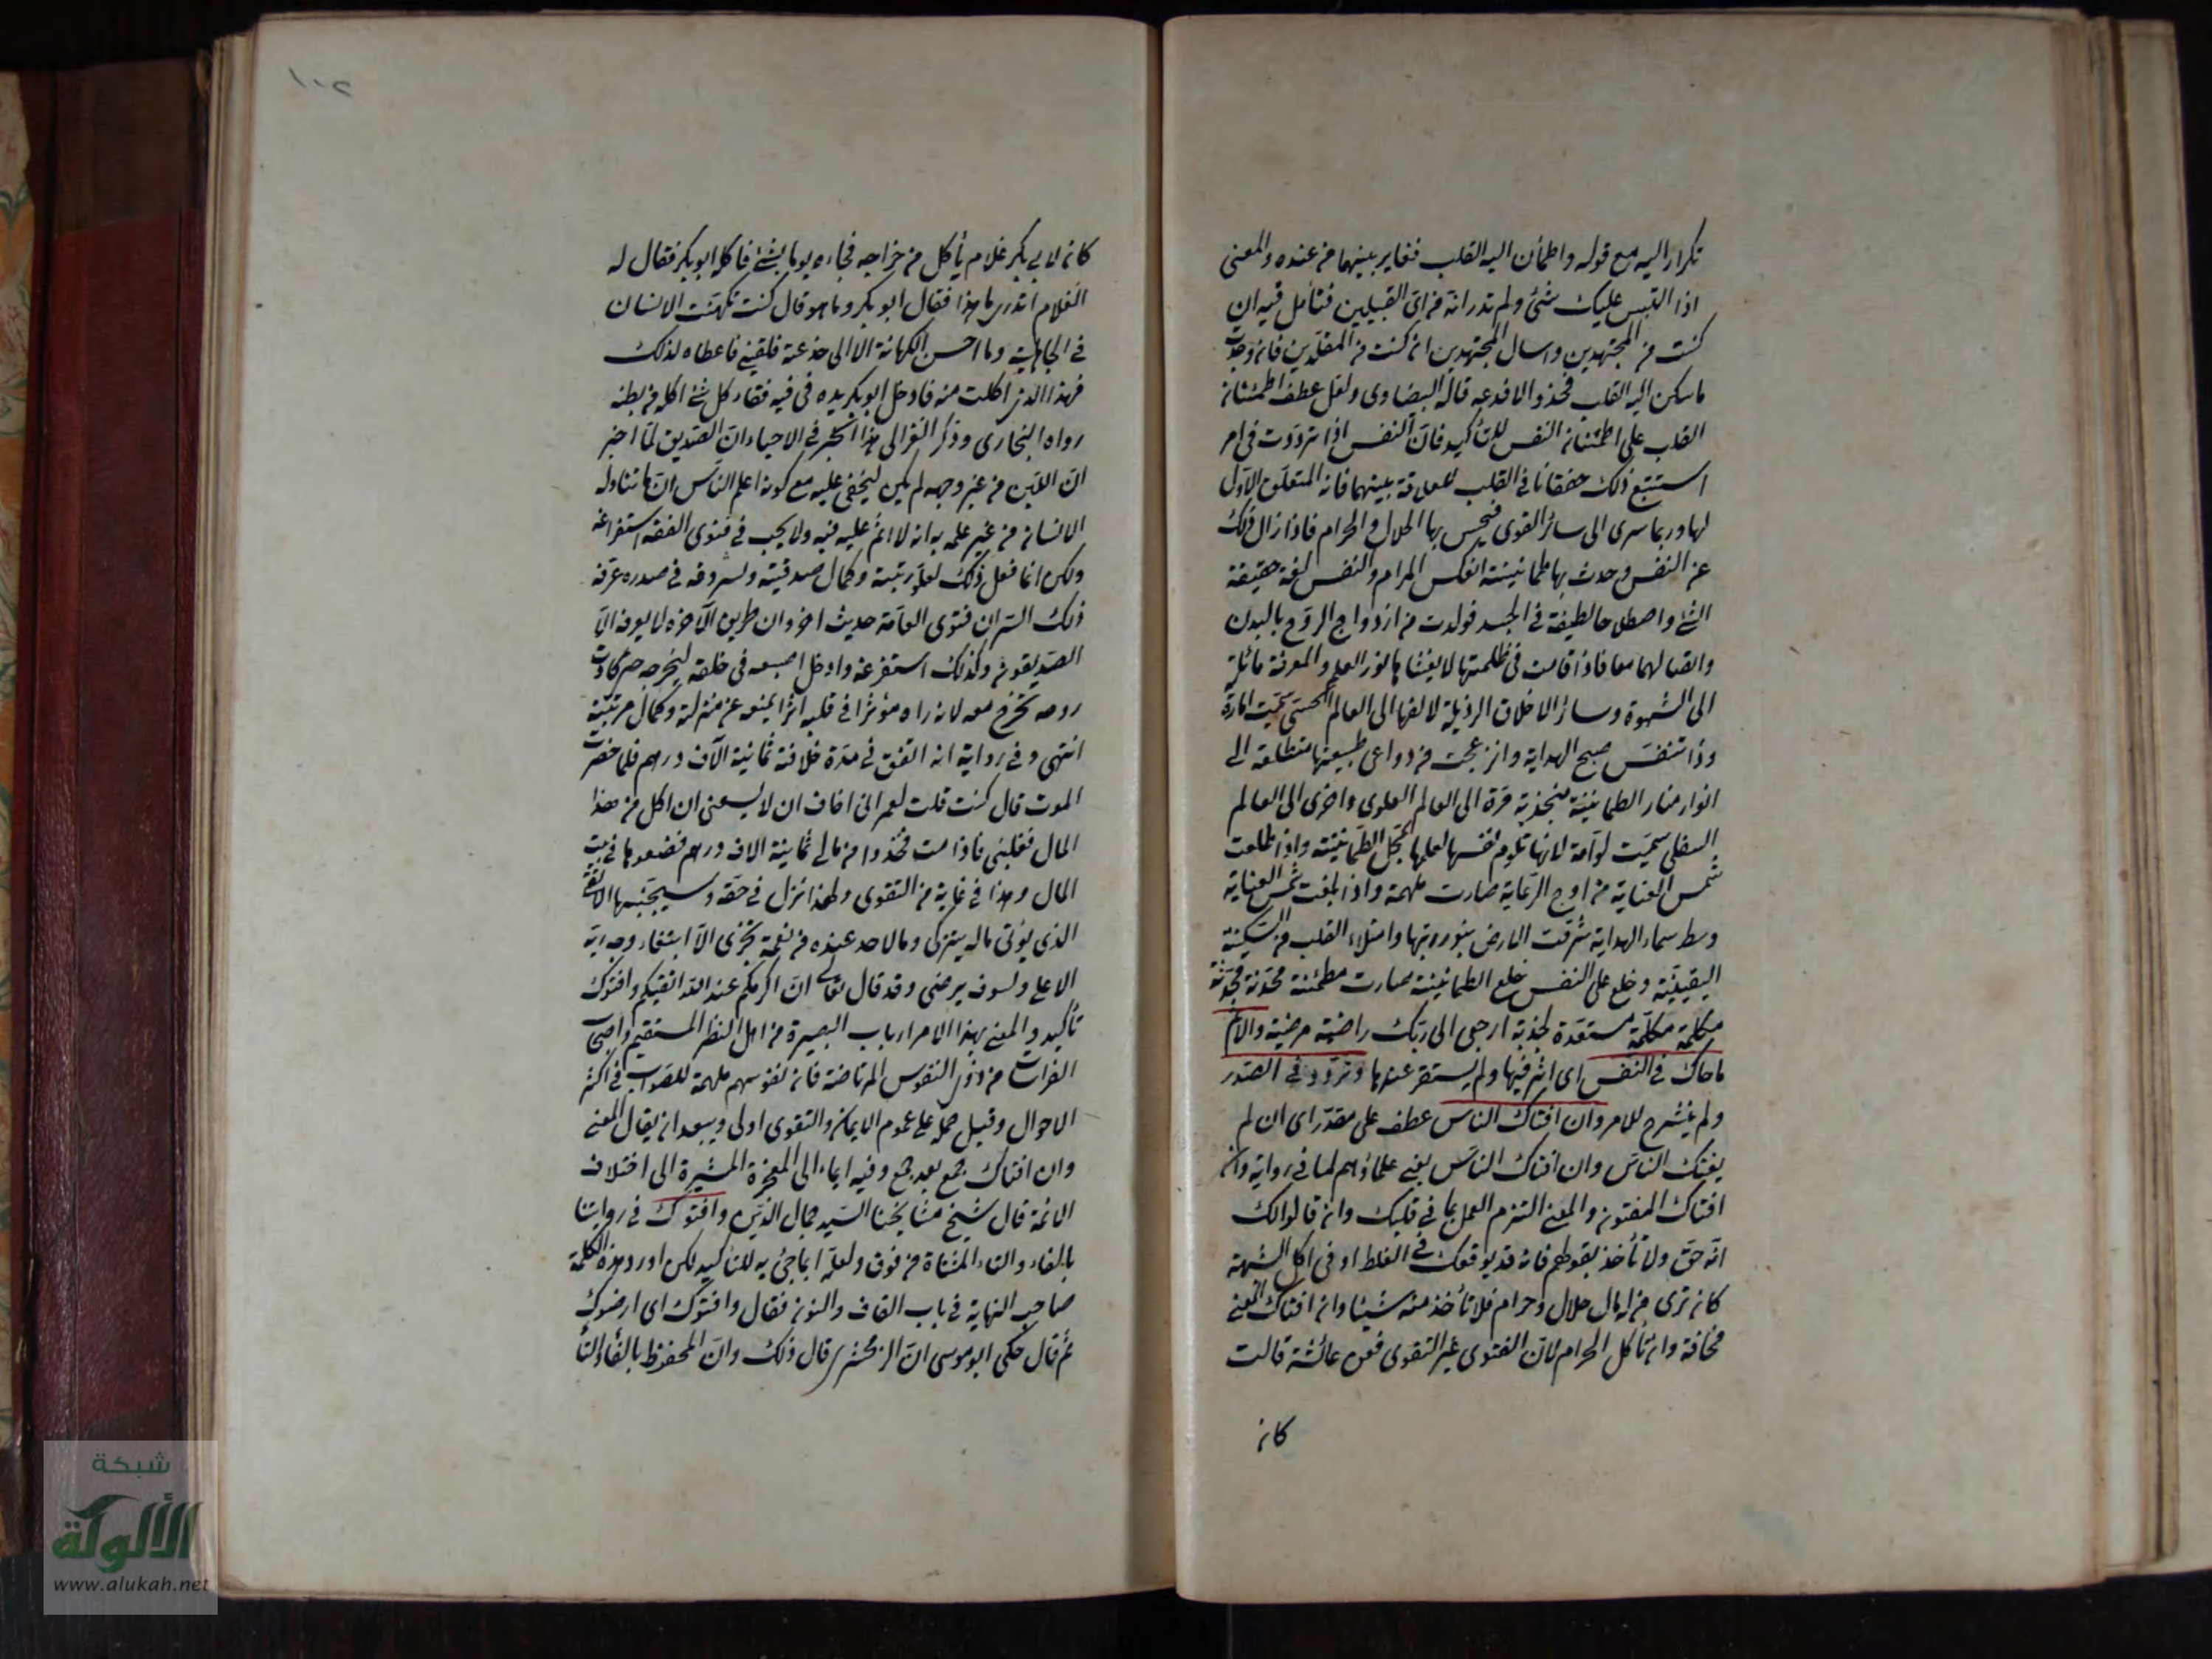 تكرار اليه مع قوله واطمأن اليه القلب فغاير بينهما من عنده والمعنى
اذا التبس عليك شئ ولم تدر انه من اي القبيلين فتأمل فيه ان
كنت من المجتهدين واسال المجتهدين ان كنت من المقلدين فان وجدت
ما سكن اليه القلب فخذ والا فدعه قاله البيضاوى ولعل عطف اطمئنان
القلب على اطمئنان النفس للتأكيد فان النفس اذا ترددت في امر
استتبع ذلك خفقانا في القلب للعلاقة بينهما فانه المتعلق الاول
لها وربما سرى الى سائر القوى فيحس بها الحلال والحرام فاذا زال ذلك
عن النفس وحدث بها طمانينة انعكس المرام والنفس لغة حقيقة
الشئ واصطلاحا لطيفة في الجسد تولدت من ازدواج الروح بالبدن
واتصالهما معا فاذا قامت في ظلمتها لا يغشاها نور العلم والمعرفة مائلة
الى الشهوة وسائر الاخلاق الرذيلة لالفها الى العالم الحسى سميت امارة
وذا تنفس صبح الهداية وانزعجت من دواعى طبيعتها متطلعة الى
انوار منار الطمانينة منجذبة مرة الى العالم العلوى واخرى الى العالم
السفلى سميت لوامة لانها تلوم نفسها لعلمها بمحل الطمانينة واذا طلعت
شمس العناية من اوج الرعاية صارت ملهمة واذا بلغت شمس العناية
وسط سماء الهداية شرقت الارض بنور ربها وامتلاء القلب من السكينة
اليقينية وخلع على النفس خلع الطمانينة صارت مطمئنة محدثة
مكلمة مكلمة مستعدة لجذبة ارجعى الى ربك راضية مرضية والاثم
ما حاك في النفس اى اثر فيها ولم يستقر عندها وتردد في الصدر
ولم ينشرح للامر وان افتاك الناس عطف على مقدر اى ان لم
يفتك الناس وان افتاك الناس يعنى علماؤهم لما في رواية وان
افتاك المفتون والمعنى التزم العمل بما في قلبك وان قالوا لك
انه حق ولا تأخذ بقولهم فانه قد يوقعك في الغلط او في اكل الشبهة
كان ترى من له مال حلال وحرام فلا تأخذ منه شيئا وان افتاك المفتى
مخافة وان تأكل الحرام لان الفتوى غير التقوى فعن عائشة قالت
كان
١٠٢
كان لابى بكر غلام يأكل من خراجه فجاءه يوما بشئ فاكله ابو بكر فقال له
الغلام اتدرى ما هذا فقال ابو بكر وما هو قال كنت تكهنت لانسان
في الجاهلية وما احسن الكهانة الا انى خدعته فلقينى فاعطاه لذلك
فهذا الذى اكلت منه فادخل ابو بكر يده في فيه فقاء كل شئ اكله في بطنه
رواه البخارى وذكر الغزالى هذا الخبر في الاحياء ان الصديق لما اخبر
ان اللبن من غير وجهه لم يكن ليخفى عليه مع كونه اعلم الناس ان ما تناوله
الانسان من غير علمه به انه لا اثم عليه فيه ولا يجب في فتوى الفقه استفراغه
ولكن انما فعل ذلك لعلو رتبته وكمال صديقيته ولسر وقر في صدره عرفه
ذلك السر ان فتوى العامة حديث اخر وان طريق الآخرة لا يعرفه الا
الصديقون ولذلك استفرغه وادخل اصبعه في حلقه ليخرجه حتى كادت
روحه تخرج معه لانه راه مؤثرا في قلبه اثرا يمنعه عن منزلته وكمال مرتبته
انتهى وفي رواية انه انفق في مدة خلافته ثمانية الآف درهم فلما حضره
الموت قال كنت قلت لعمر انى اخاف ان لا يسعنى ان اكل من هذا
المال فغلبنى فاذا مت فخذوا من مالى ثمانية الاف درهم فضعوها في بيت
المال وهذا في غاية من التقوى ولهذا نزل في حقه وسيجنبها الاتقى
الذى يؤتى ماله يتزكى وما لاحد عنده من نعمة تجزى الا ابتغاء وجه ربه
الاعلى ولسوف يرضى وقد قال تعالى ان اكرمكم عند الله اتقيكم وافتوك
تأكيد والمعنى بهذا الامر ارباب البصيرة من اهل النظر المستقيم واصحاب
الفراسات من ذوى النفوس المرتاضة فان نفوسهم ملهمة للصواب في اكثر
الاحوال وقيل حمله على عموم الايمان والتقوى اولى ويبعد ان يقال المعنى
وان افتاك جمع بعد جمع وفيه ايماء الى المعجزة المشيرة الى اختلاف
الائمة قال شيخ مشايخنا السيد جمال الدين وافتوك في روايتنا
بالفاء والتاء المثناة من فوق ولعله انما جئ به للتأكيد لكن اورد هذه الكلمة
صاحب النهاية في باب القاف والنون فقال واقنوك اى ارضوك
ثم قال حكى ابو موسى ان الزمخشرى قال ذلك وان المحفوظ بالفاء والتاء
شبكة
الألوكة
www.alukah.net